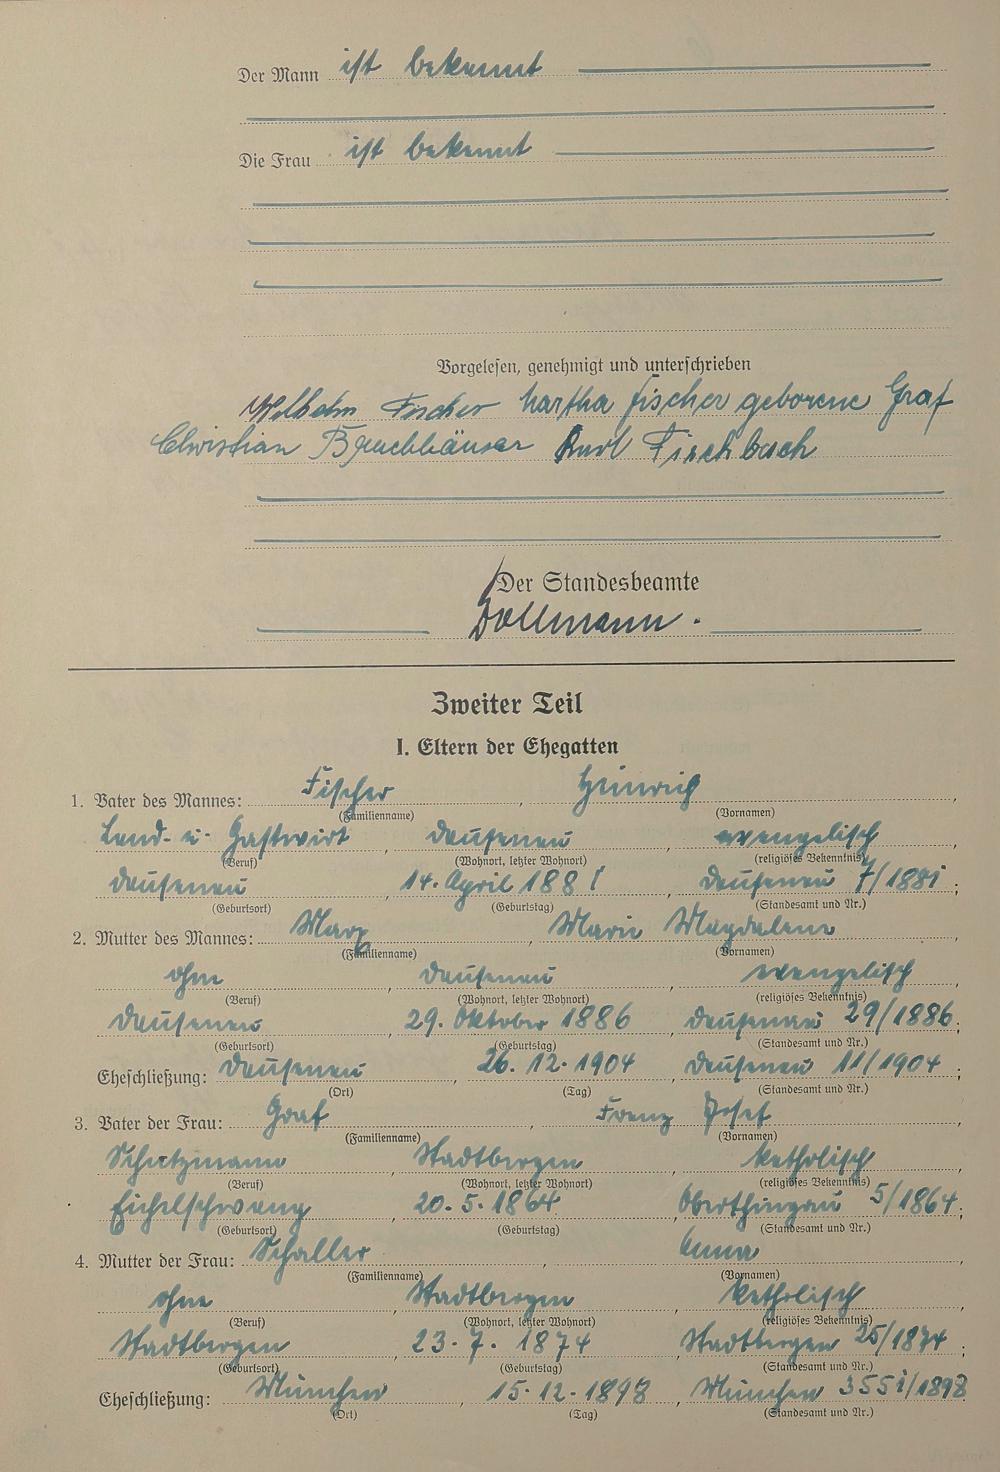 Der Mann ist bekannt
Die Frau ist bekannt
Vorgelesen, genehmigt und unterschrieben
Wilhelm Fischer Martha Fischer geborene Graf
Christian Bruchhäuser Karl Fischbach
Der Standesbeamte
Dollmann.
Zweiter Teil
I. Eltern der Ehegatten
1. Vater des Mannes: Fischer, Heinrich,
(Familienname) (Vornamen)
Land- u. Gastwirt, Dausenau, evangelisch
(Beruf) (Wohnort, letzter Wohnort) (religiöses Bekenntnis)
Dausenau, 14. April 1881, Dausenau 7/1881;
(Geburtsort) (Geburtstag) (Standesamt und Nr.)
2. Mutter des Mannes: Marx, Marie Magdalena,
(Familienname) (Vornamen)
ohne, Dausenau, evangelisch
(Beruf) (Wohnort, letzter Wohnort) (religiöses Bekenntnis)
Dausenau, 29. Oktober 1886, Dausenau 29/1886;
(Geburtsort) (Geburtstag) (Standesamt und Nr.)
Eheschließung: Dausenau, 26. 12. 1904, Dausenau 11/1904;
(Ort) (Tag) (Standesamt und Nr.)
3. Vater der Frau: Graf, Franz Josef,
(Familienname) (Vornamen)
Schutzmann, Stadtbergen, katholisch
(Beruf) (Wohnort, letzter Wohnort) (religiöses Bekenntnis)
Eichelschwang, 20. 5. 1864, Oberthingau 5/1864;
(Geburtsort) (Geburtstag) (Standesamt und Nr.)
4. Mutter der Frau: Schaller, Anna,
(Familienname) (Vornamen)
ohne, Stadtbergen, katholisch
(Beruf) (Wohnort, letzter Wohnort) (religiöses Bekenntnis)
Stadtbergen, 23. 7. 1874, Stadtbergen 25/1874;
(Geburtsort) (Geburtstag) (Standesamt und Nr.)
Eheschließung: München, 15. 12. 1898, München 3551/1898
(Ort) (Tag) (Standesamt und Nr.)